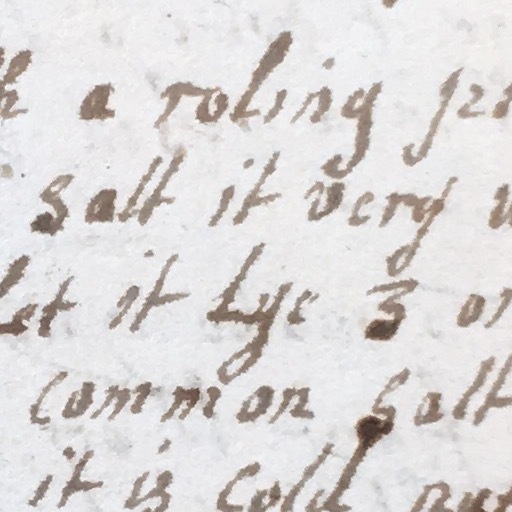 a roling
salt it very
Let it Lye 3 or
common salt
it is cold